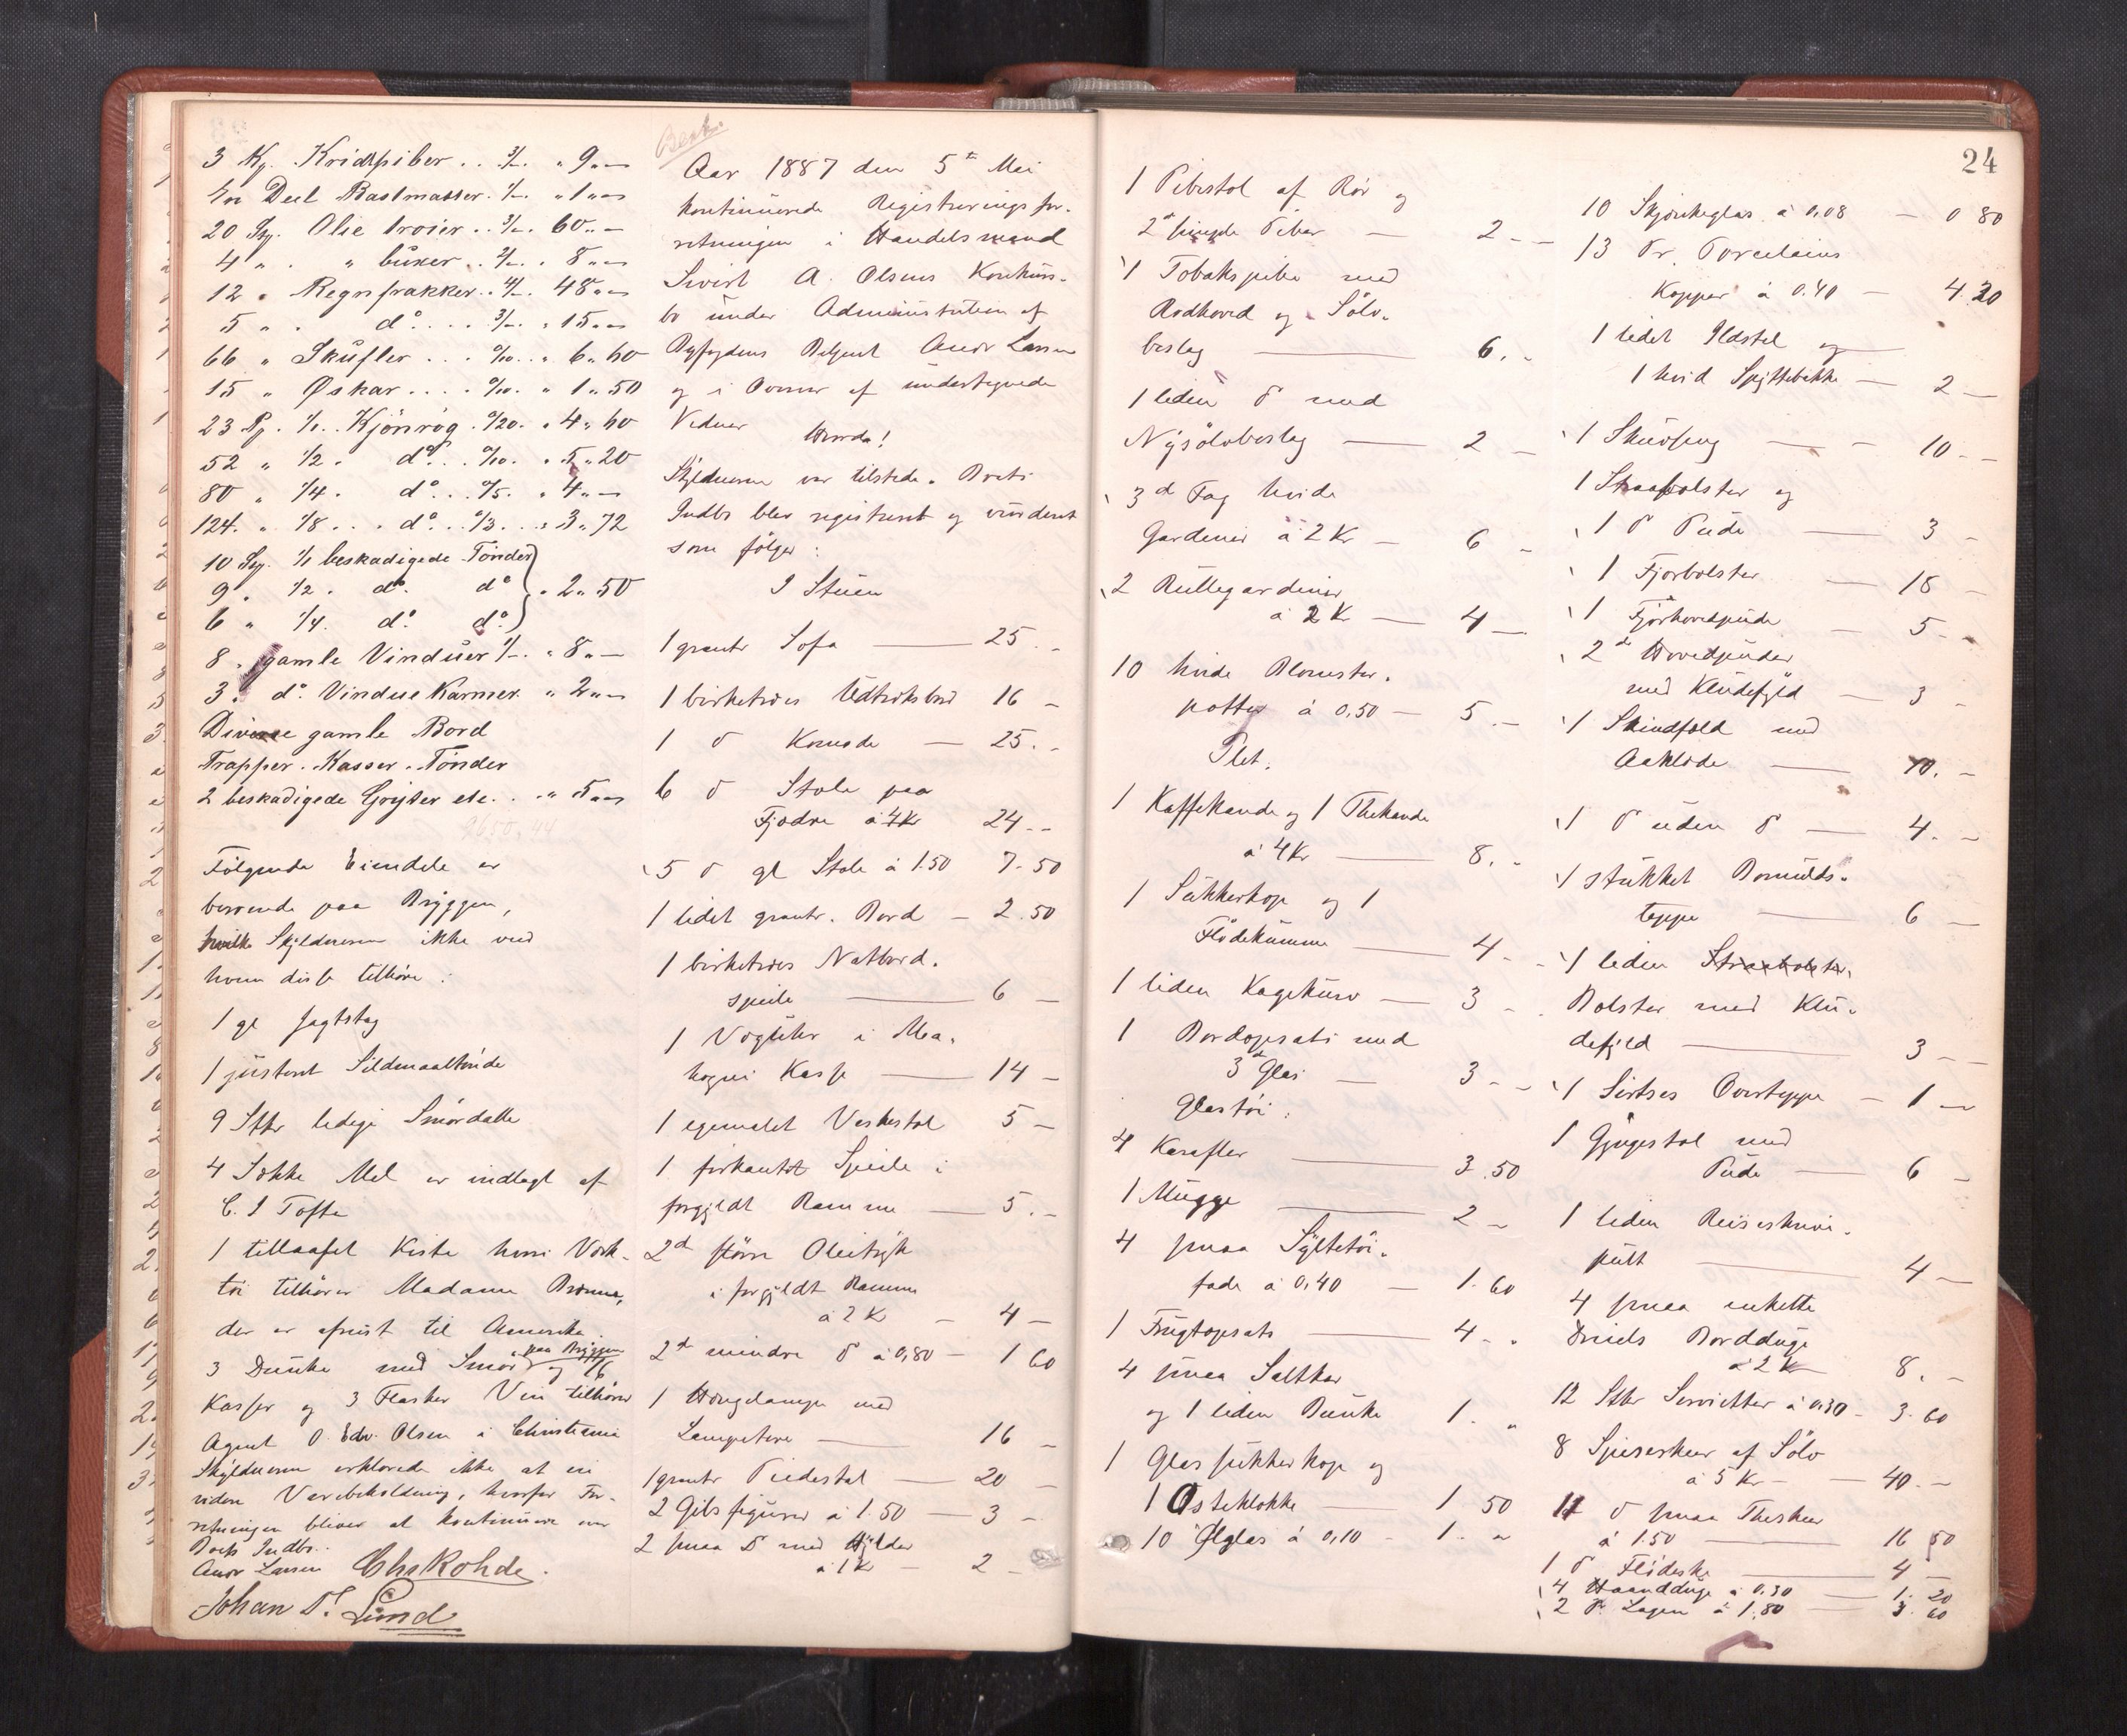 3 Kg. Kridtpiber . . 3/-. " 9 " —
En Deel Bastmatter. 1/-. " 1 " —
20 Stg. Olie trøier . . 3/-. 60 " —
4 " . " büxer . . 2/-. " 8 " —
12 " Regnfrakker . 4/-. 48 " —
5 " . do. . . . 3/-. " 15 " —
66 " Sküfler . . . 0/10. . " 6 " 60
15 " Øskar . . . . 0/10. " 1 " 50
23 Pg. 1/1. Kjönrög . 0/20. " 4 " 60
52 " 1/2. do. . . 0/10. " 5 " 20
80 " 1/4. do. . . 0/5. " 4 " —
124. " 1/8 . . . do. . . 0/3. . . " 3 " 72
10 Stg. 1/1 beskadigede Tønder
9 " 1/2. do. do } " 2 " 50
6 " 1/4. do. do.
8 " gamle Vindüer 1/-. " 8 " —
3. do. Vindue Karmer. " 2 " —
Diverse gamle Bord
Trapper. Kasser. Tønder
2 beskadigede Gryder etc. . " 5 " —
2650.44
Følgende Eiendele er
beroende paa Bryggen,
hvilke Skyldneren ikke ved
hvem disse tilhøre:
1 gl Jagtstag
1 jüsteret Sildmaaltönde
9 Stkr ledige Smördalle
4 Sække Mel er indlagt af
C. J Tofte
1 tillaaset Kiste hvori Værk-
töi tilhører Madame
der er afreist til Amerika
paa Bryggen
3 Dunke med Smör og 16
Kasser og 3 Flasker Vin tilhører
Agent O. Edv. Olsen i Christiania
Skyldneren erklærede ikke at eie
videre Varebeholdning, hvorfor For-
retningen bliver at kontinuere over
Boets Indbo.
Andr Larsen Chs Rohde.
Johan T. Lund
Besk.
Aar 1887 den 5te Mai
kontinuerede Registreringsfor-
retningen i Handelsmand
Sivert A. Olsens Konkurs-
bo under Administration af
Byfogdens Betjent Andr Larsen
og i Overvær af undertegnede
Vidner
Skyldneren var tilstede. Boets
Indbo blev registreret og vurderet
som følger:
I Stuen
1 grantr Sofa — 25. -
1 birketræes Udtræksbord 16 -
1 do Komode — 25. -
6 do Stole paa
Fjædre à 4 Kr 24 - -
5 do gl Stole à 1.50 7 - 50
1 lidet grantr. Bord — 2.50
1 birketræes Natbord.
speile — 6 -
1 Vægühr i Ma-
hogni Kasse — 14 -
1 egemalet Vaskestol 5 -
1 firkantet Speile i
forgyldt Ramme — 5. -
2de større Olietryk
i forgyldt Ramme
à 2 Kr - 4 -
2de mindre do à 0,80 - 1 60
1 Hængelampe med
Lampetere — 16 -
1 grantr Piedestal — 20 -
2 Gibsfigurer à 1.50 — 3 -
2 smaa Do med Hylder
à 1 Kr - 2 -
24
1 Pibestol af Rör og
2de simple Piber — 2 - -
1 Tobakspibe med
Rødhoved og Sölv-
beslag — 6. -
1 liden do med
Nysölvbeslag — 2 -
3de Fag hvide
Gardiner à 2 Kr - 6 -
2 Rüllegardiner
à 2 Kr — 4 -
10 hvide Blomster-
potter à 0,50 — 5. -
Plet.
1 Kaffekande og 1 Thekande
à 4 Kr — 8. -
1 Sükkerkop og 1
Flödekümme — 4 -
1 liden Kagekürv — 3 -
1 Bordopsats med
3de Glas — 3 - -
Glastöi:
4 Karafler — 3.50
1 Mügge — 2 -
4 smaa Syltetöi-
fade à 0,40 — 1.60
1 Frügtopsats — 4 - .
4 smaa Saltkar
og 1 liden Dunke 1. "
1 Glas sükkerkop og
1 Osteklokke — 1 50
10 Ølglas à 0,10 - 1. -
10 Skjænkeglas à 0,08 — 0 80
13 Pr. Porcelains
Kopper à 0.40 — 4.20
1 lidet Ildstel og
1 hvid Spyttebakke — 2 -
1 Skuvseng — 10 - -
1 Straabolster og
1 do Pude — 3 -
1 Fjærbolster — 18 -
1 Fjærhovedpude — 5 -
2de Hovedpuder
med Klüdefyld — 3 -
1 Skindfeld med
Aaklæde — 10. -
1 do üden do — 4. -
1 stükket Bomulds-
teppe — 6 -
1 liden Straabolster,
Bolster med Klü-
defyld — 3 -
1 Sirtses Overteppe — 1 -
1 Gyngestol med
Pude — 6 -
1 liden Reiseskrive-
pült — 4 -
4 smaa enkelte
Dreiels Borddüge
à 2 Kr 8. -
12 Stkr Servietter à 0.30 - 3.60
8 Spiseskeer af Sölv
à 5 Kr — 40. -
11 do smaa Theskeer
à 1.50 — 16 50
1 do Flödeske — 4 -
4 Haandduge à 0.30 — 1. 20
2 Pr. Lagen à 1.80 — 3. 60